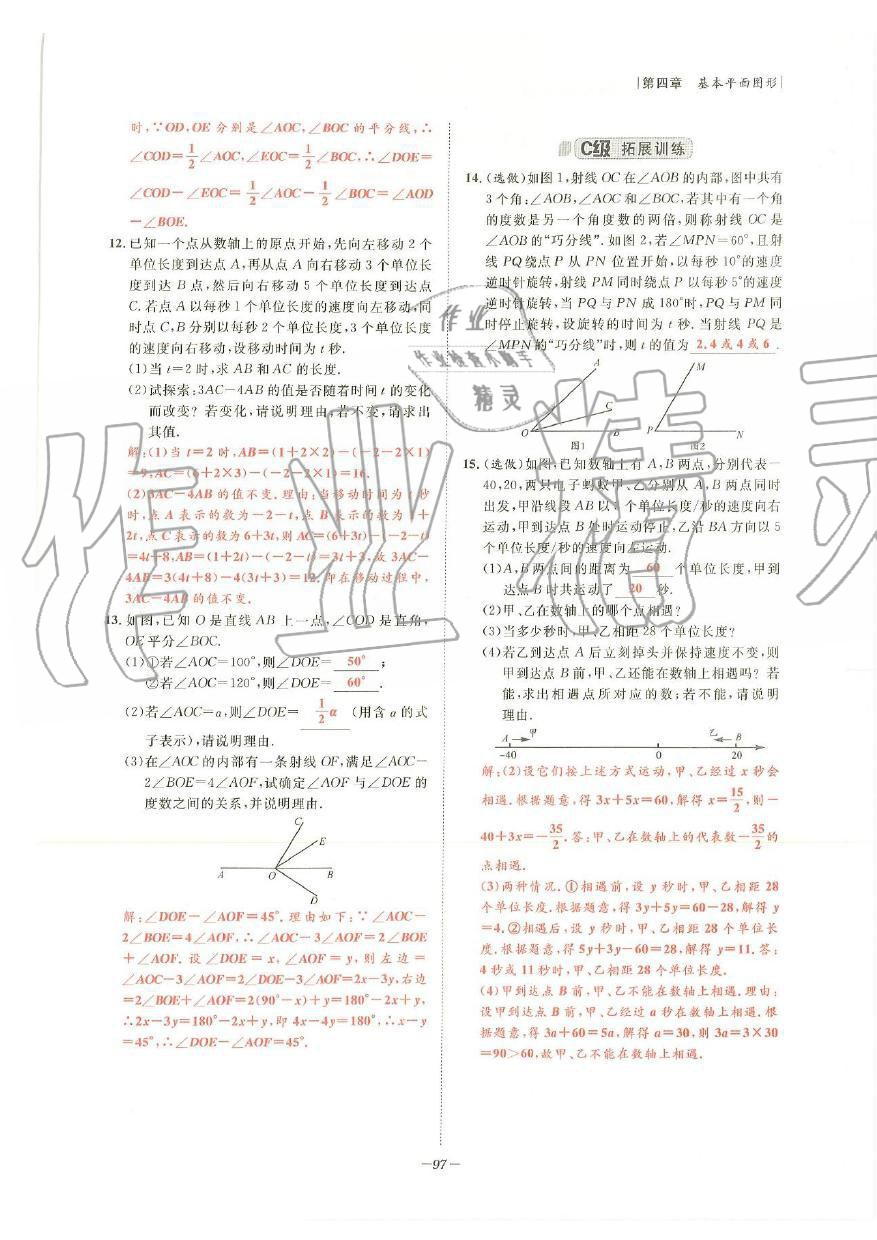 第四章 基本平面图形
时,∵OD,OE分别是∠AOC,∠BOC的平分线,∴
∠COD=1/2∠AOC,∠EOC=1/2∠BOC,∴∠DOE=
∠COD-∠EOC=1/2∠AOC-1/2∠BOC=∠AOD
-∠BOE.
12.已知一个点从数轴上的原点开始,先向左移动2个
单位长度到达点A,再从点A向右移动3个单位长
度到达B点,然后向右移动5个单位长度到达点
C.若点A以每秒1个单位长度的速度向左移动,同
时点C,B分别以每秒2个单位长度、3个单位长度
的速度向右移动,设移动时间为t秒.
(1)当t=2时,求AB和AC的长度.
(2)试探索:3AC-4AB的值是否随着时间t的变化
而改变?若变化,请说明理由;若不变,请求出
其值.
解:(1)当t=2时,AB=(1+2×2)-(-2-2×1)
=9,AC=(6+2×3)-(-2-2×1)=16.
(2)3AC-4AB的值不变.理由:当移动时间为t秒
时,点A表示的数为-2-t,点B表示的数为1+
2t,点C表示的数为6+3t,则AC=(6+3t)-(-2-t)
=4t+8,AB=(1+2t)-(-2-t)=3t+3,故3AC-
4AB=3(4t+8)-4(3t+3)=12.即在移动过程中,
3AC-4AB的值不变.
13.如图,已知O是直线AB上一点,∠COD是直角,
OE平分∠BOC.
(1)①若∠AOC=100°,则∠DOE= 50° ;
②若∠AOC=120°,则∠DOE= 60° .
(2)若∠AOC=α,则∠DOE= 1/2α (用含α的式
子表示),请说明理由.
(3)在∠AOC的内部有一条射线OF,满足∠AOC-
2∠BOE=4∠AOF,试确定∠AOF与∠DOE的
度数之间的关系,并说明理由.
C
E
A O B
D
解:∠DOE-∠AOF=45°.理由如下:∵∠AOC-
2∠BOE=4∠AOF,∴∠AOC-3∠AOF=2∠BOE
+∠AOF.设∠DOE=x,∠AOF=y,则左边=
∠AOC-3∠AOF=2∠DOE-3∠AOF=2x-3y,右边
=2∠BOE+∠AOF=2(90°-x)+y=180°-2x+y,
∴2x-3y=180°-2x+y,即4x-4y=180°,∴x-y
=45°,∴∠DOE-∠AOF=45°.
C级 拓展训练
14.(选做)如图1,射线OC在∠AOB的内部,图中共有
3个角:∠AOB,∠AOC和∠BOC,若其中有一个角
的度数是另一个角度数的两倍,则称射线OC是
∠AOB的“巧分线”.如图2,若∠MPN=60°,且射
线PQ绕点P从PN位置开始,以每秒10°的速度
逆时针旋转,射线PM同时绕点P以每秒5°的速度
逆时针旋转,当PQ与PN成180°时,PQ与PM同
时停止旋转,设旋转的时间为t秒.当射线PQ是
∠MPN的“巧分线”时,则t的值为 2.4或4或6 .
A
C
O B
图1
M
P N
图2
15.(选做)如图,已知数轴上有A,B两点,分别代表-
40,20,两只电子蚂蚁甲、乙分别从A,B两点同时
出发,甲沿线段AB以3个单位长度/秒的速度向右
运动,甲到达点B处时运动停止,乙沿BA方向以5
个单位长度/秒的速度向左运动.
(1)A,B两点间的距离为 60 个单位长度,甲到
达点B时共运动了 20 秒.
(2)甲、乙在数轴上的哪个点相遇?
(3)当多少秒时,甲、乙相距28个单位长度?
(4)若乙到达点A后立刻掉头并保持速度不变,则
甲到达点B前,甲、乙还能在数轴上相遇吗?若
能,求出相遇点所对应的数;若不能,请说明
理由.
A 甲 乙 B
-40 0 20
解:(2)设它们按上述方式运动,甲、乙经过x秒会
相遇.根据题意,得3x+5x=60,解得x=15/2,则-
40+3x=-35/2.答:甲、乙在数轴上的代表数-35/2的
点相遇.
(3)两种情况.①相遇前,设y秒时,甲、乙相距28
个单位长度.根据题意,得3y+5y=60-28,解得y
=4.②相遇后,设y秒时,甲、乙相距28个单位长
度.根据题意,得5y+3y-60=28,解得y=11.答:
4秒或11秒时,甲、乙相距28个单位长度.
(4)甲到达点B前,甲、乙不能在数轴上相遇.理由:
设甲到达点B前,甲、乙经过a秒在数轴上相遇.根
据题意,得3a+60=5a,解得a=30,则3a=3×30
=90>60,故甲、乙不能在数轴上相遇.
-97-
作业
作业检查小助手
精灵
作业精灵